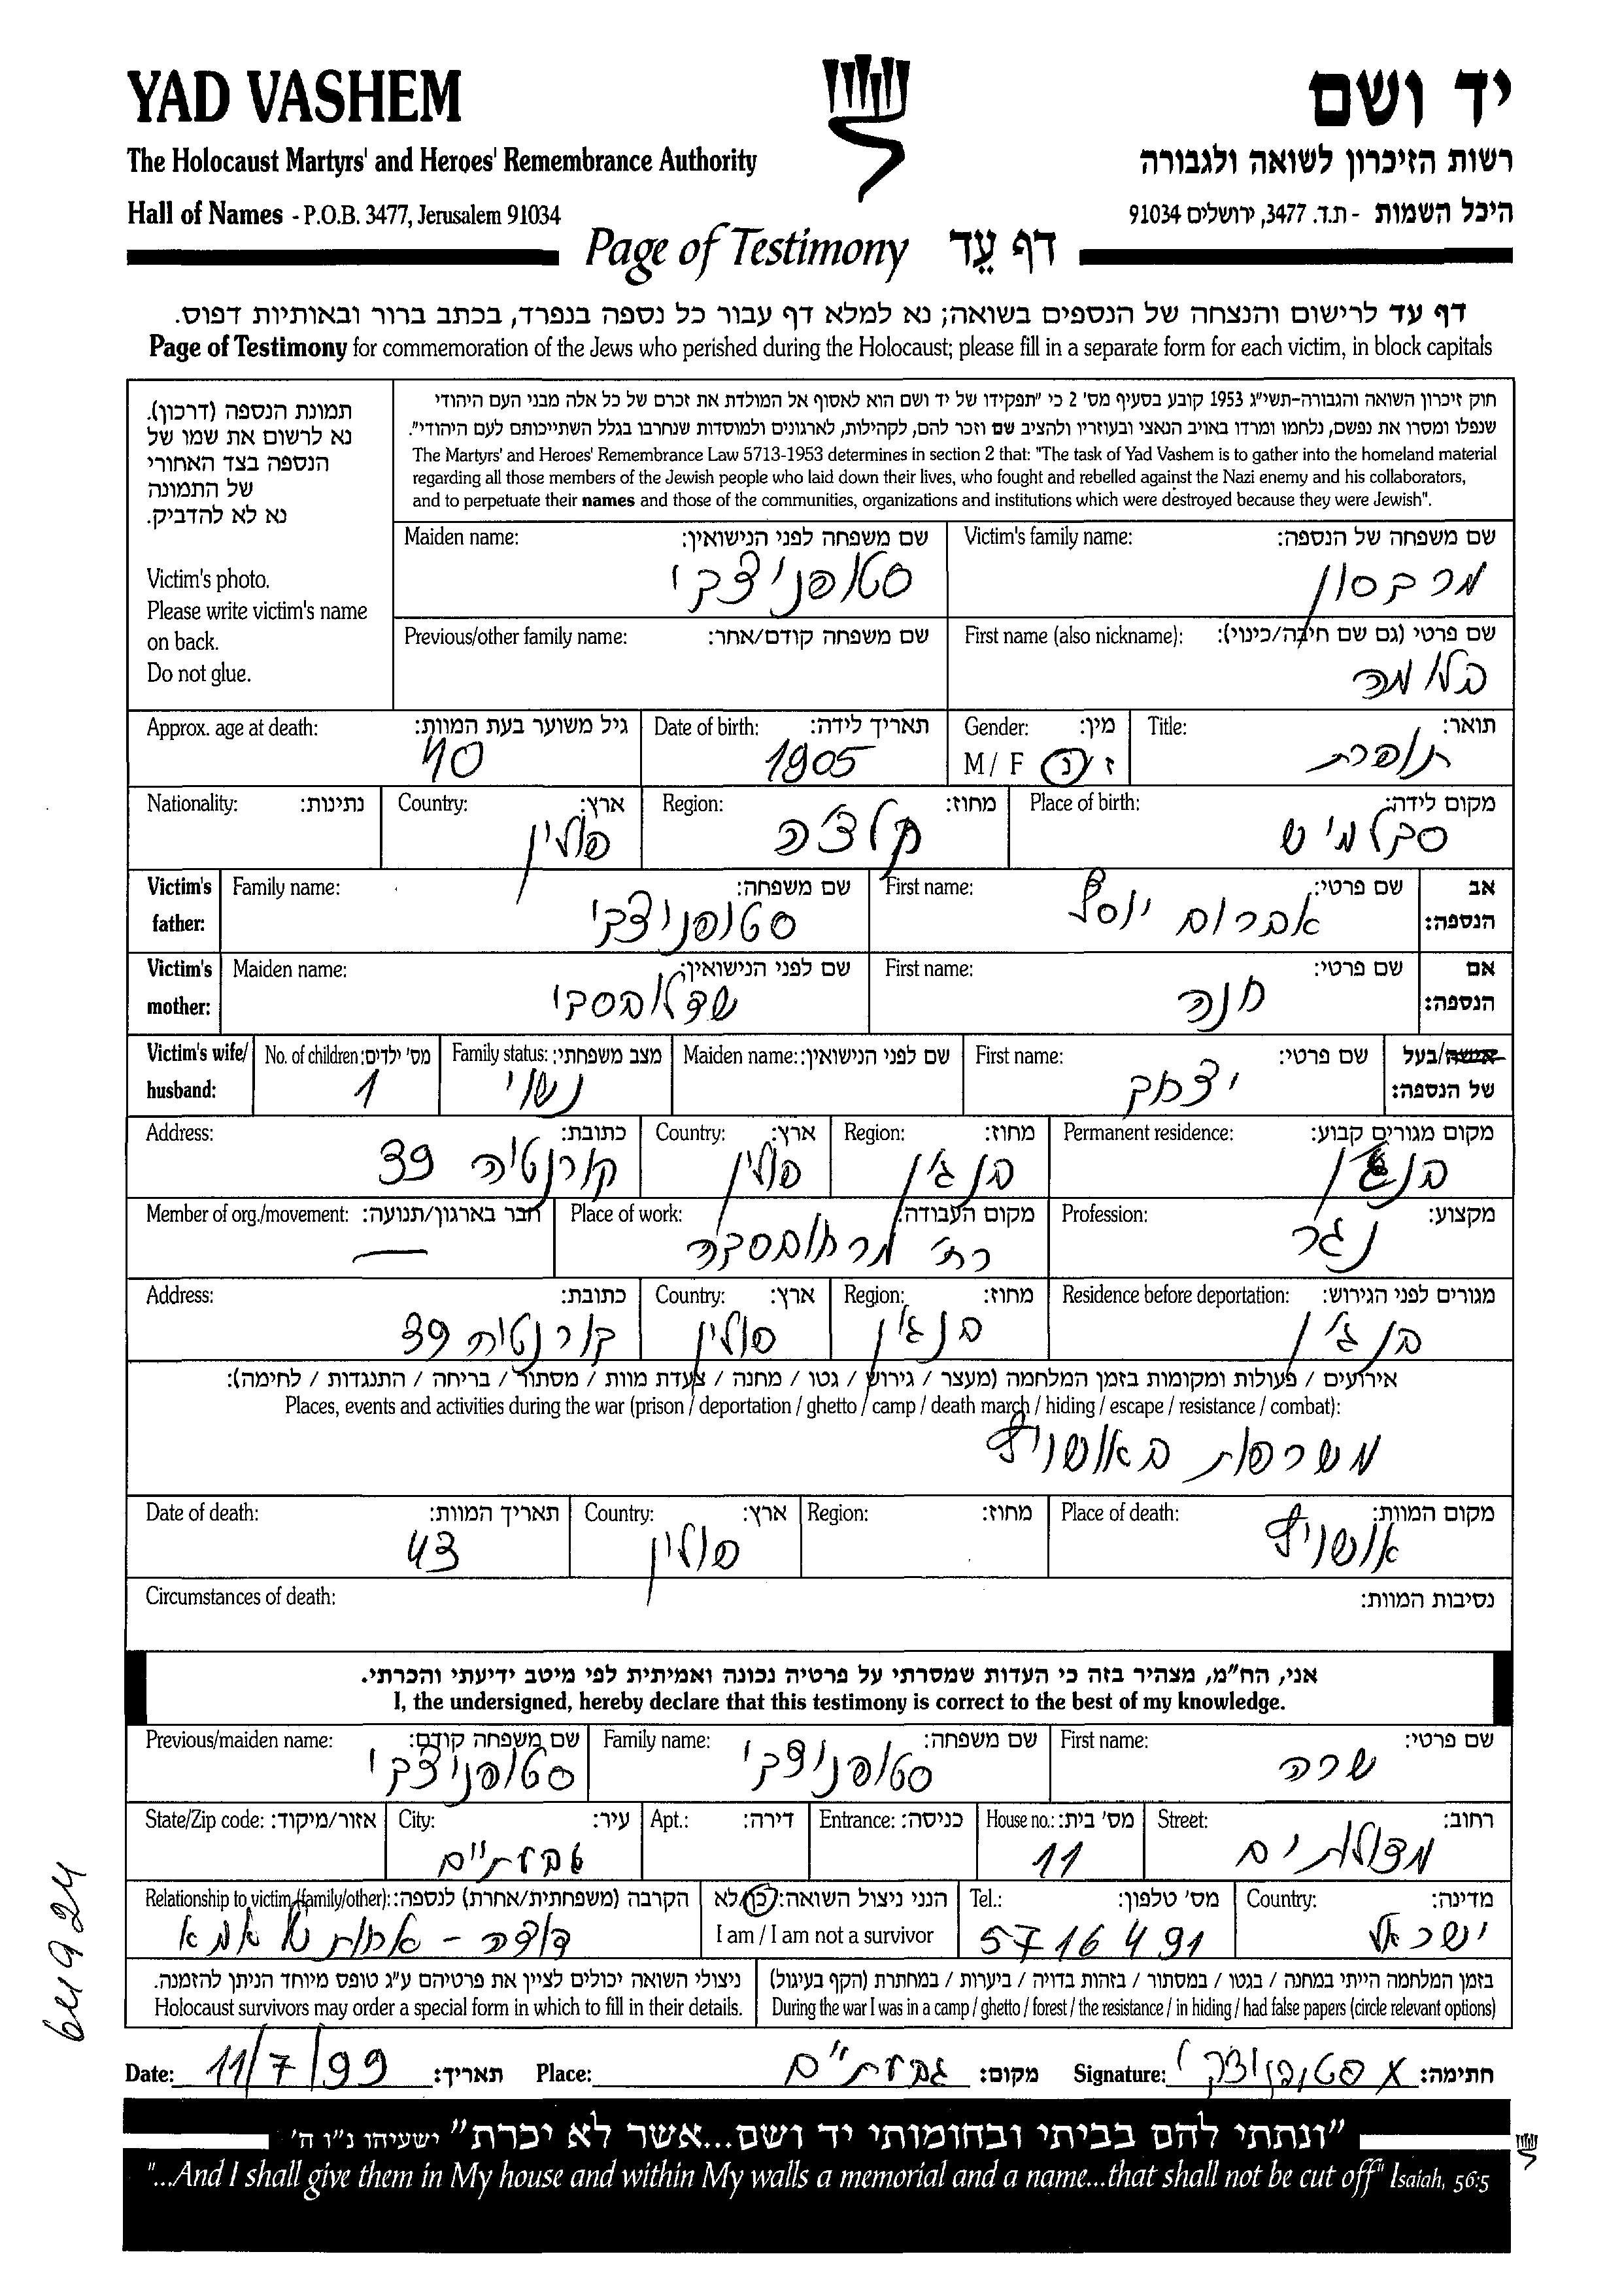 YAD VASHEM
יד ושם
The Holocaust Martyrs' and Heroes' Remembrance Authority
רשות הזיכרון לשואה ולגבורה
Hall of Names - P.O.B. 3477, Jerusalem 91034
היכל השמות - ת.ד. 3477, ירושלים 91034
Page of Testimony דף עֵד
דף עד לרישום והנצחה של הנספים בשואה; נא למלא דף עבור כל נספה בנפרד, בכתב ברור ובאותיות דפוס.
Page of Testimony for commemoration of the Jews who perished during the Holocaust; please fill in a separate form for each victim, in block capitals
תמונת הנספה (דרכון).
נא לרשום את שמו של
הנספה בצד האחורי
של התמונה
נא לא להדביק.
Victim's photo.
Please write victim's name
on back.
Do not glue.
חוק זיכרון השואה והגבורה-תשי"ג 1953 קובע בסעיף מס' 2 כי "תפקידו של יד ושם הוא לאסוף אל המולדת את זכרם של כל אלה מבני העם היהודי
שנפלו ומסרו את נפשם, נלחמו ומרדו באויב הנאצי ובעוזריו ולהציב שם וזכר להם, לקהילות, לארגונים ולמוסדות שנחרבו בגלל השתייכותם לעם היהודי".
The Martyrs' and Heroes' Remembrance Law 5713-1953 determines in section 2 that: "The task of Yad Vashem is to gather into the homeland material
regarding all those members of the Jewish people who laid down their lives, who fought and rebelled against the Nazi enemy and his collaborators,
and to perpetuate their names and those of the communities, organizations and institutions which were destroyed because they were Jewish".
שם משפחה של הנספה: Victim's family name: שם משפחה לפני הנישואין: Maiden name:
מרקסון סטופניצקי
שם פרטי (גם שם חיבה/כינוי): First name (also nickname): שם משפחה קודם/אחר: Previous/other family name:
בלומה
תואר: Title: מין: Gender: תאריך לידה: Date of birth: גיל משוער בעת המוות: Approx. age at death:
תופרת ז / נ M / F 1905 40
מקום לידה: Place of birth: מחוז: Region: ארץ: Country: נתינות: Nationality:
סקלמיש קלצ'ה פולין
אב הנספה: שם פרטי: First name: שם משפחה: Family name: Victim's father:
אברום יוסף סטופניצקי
אם הנספה: שם פרטי: First name: שם לפני הנישואין: Maiden name: Victim's mother:
חנה
אשה/בעל של הנספה: שם פרטי: First name: שם לפני הנישואין: Maiden name: מצב משפחתי: Family status: מס' ילדים: No. of children: Victim's wife/ husband:
יצחק נשוי 1
מקום מגורים קבוע: Permanent residence: מחוז: Region: ארץ: Country: כתובת: Address:
בנג'ין בנג'ין פולין קורנטיה 39
מקצוע: Profession: מקום העבודה: Place of work: חבר בארגון/תנועה: Member of org./movement:
נגר רח'
מגורים לפני הגירוש: Residence before deportation: מחוז: Region: ארץ: Country: כתובת: Address:
בנג'ין בנג'ין פולין קורנטיה 39
אירועים / פעולות ומקומות בזמן המלחמה (מעצר / גירוש / גטו / מחנה / צעדת מוות / מסתור / בריחה / התנגדות / לחימה):
Places, events and activities during the war (prison / deportation / ghetto / camp / death march / hiding / escape / resistance / combat):
משרפות באושויץ
מקום המוות: Place of death: מחוז: Region: ארץ: Country: תאריך המוות: Date of death:
אושויץ פולין 43
נסיבות המוות: Circumstances of death:
אני, הח"מ, מצהיר בזה כי העדות שמסרתי על פרטיה נכונה ואמיתית לפי מיטב ידיעתי והכרתי.
I, the undersigned, hereby declare that this testimony is correct to the best of my knowledge.
שם פרטי: First name: שם משפחה: Family name: שם משפחה קודם: Previous/maiden name:
שרה סטופניצקי סטופניצקי
רחוב: Street: מס' בית: House no.: כניסה: Entrance: דירה: Apt.: עיר: City: אזור/מיקוד: State/Zip code:
מצולות ים 11 גבעתיים
מדינה: Country: מס' טלפון: Tel.: הנני ניצול השואה: כן/לא I am / I am not a survivor הקרבה (משפחתית/אחרת) לנספה: Relationship to victim (family/other):
ישראל 5716491 דודה - אחות של אמא
בזמן המלחמה הייתי במחנה / בגטו / במסתור / בזהות בדויה / ביערות / במחתרת (הקף בעיגול)
During the war I was in a camp / ghetto / forest / the resistance / in hiding / had false papers (circle relevant options)
ניצולי השואה יכולים לציין את פרטיהם ע"ג טופס מיוחד הניתן להזמנה.
Holocaust survivors may order a special form in which to fill in their details.
Date: 11/7/99 תאריך: Place: גבעתיים מקום: Signature: סטופניצקי חתימה:
"ונתתי להם בביתי ובחומותי יד ושם...אשר לא יכרת" ישעיהו נ"ו ה'
"...And I shall give them in My house and within My walls a memorial and a name...that shall not be cut off" Isaiah, 56:5